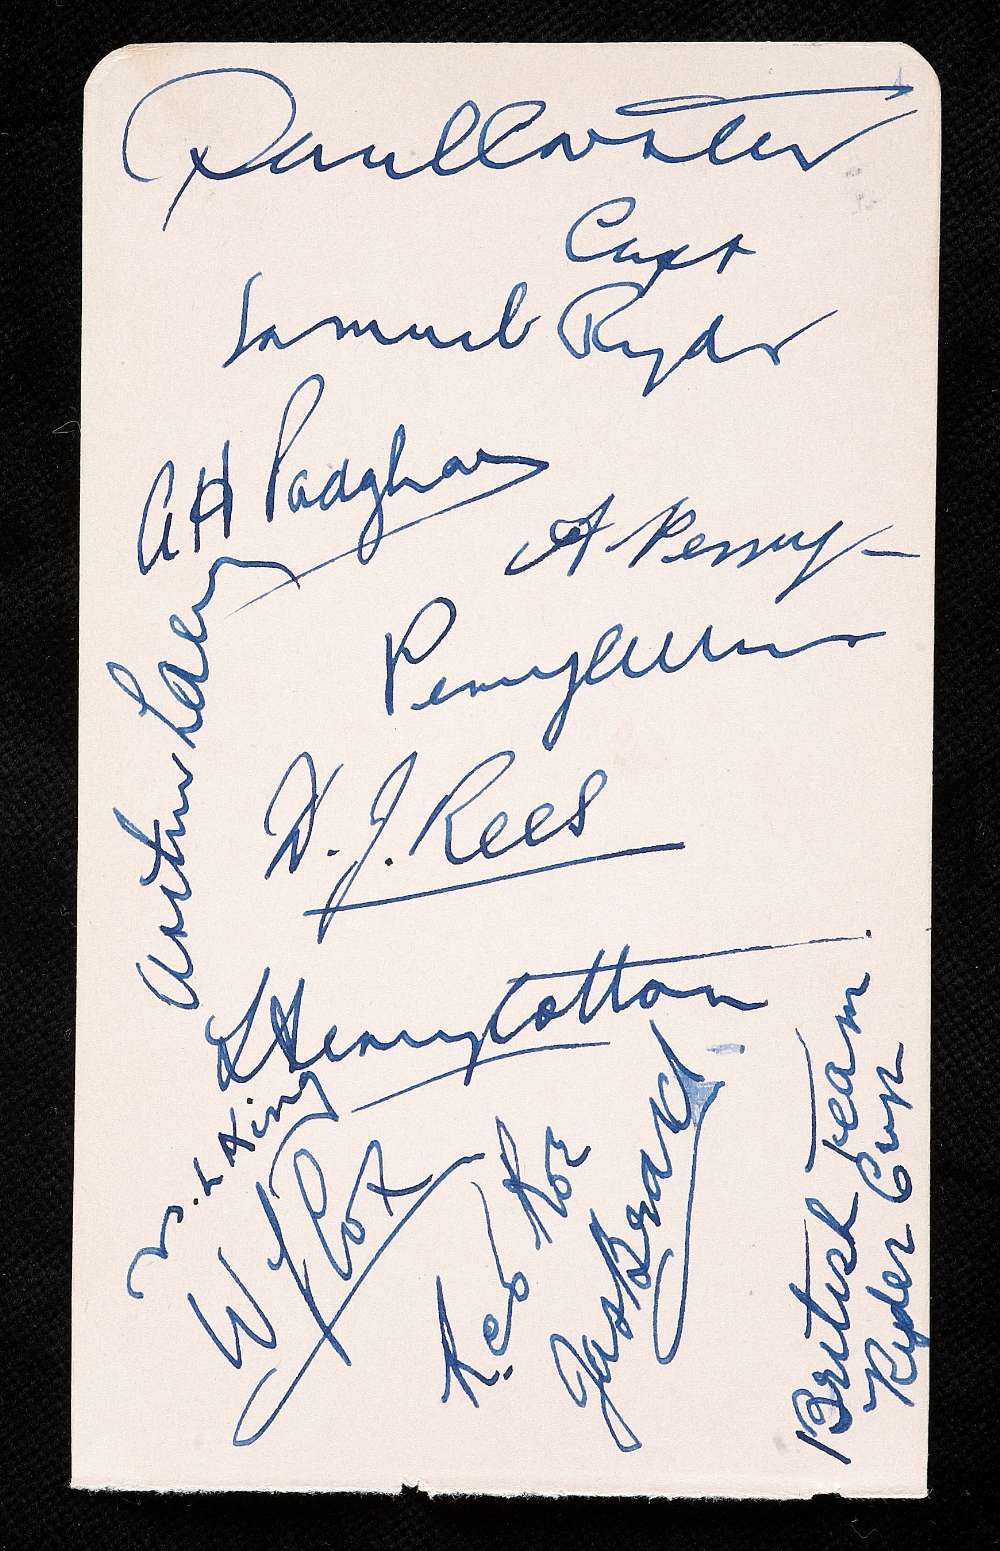 Capt
Samuel Ryder
A H Padgham
A. Perry
Percy Alliss
Arthur Lacey
D. J. Rees
T Henry Cotton
S. L King
W J Cox
R.C.O
Jas Braid
British Team
Ryder Cup